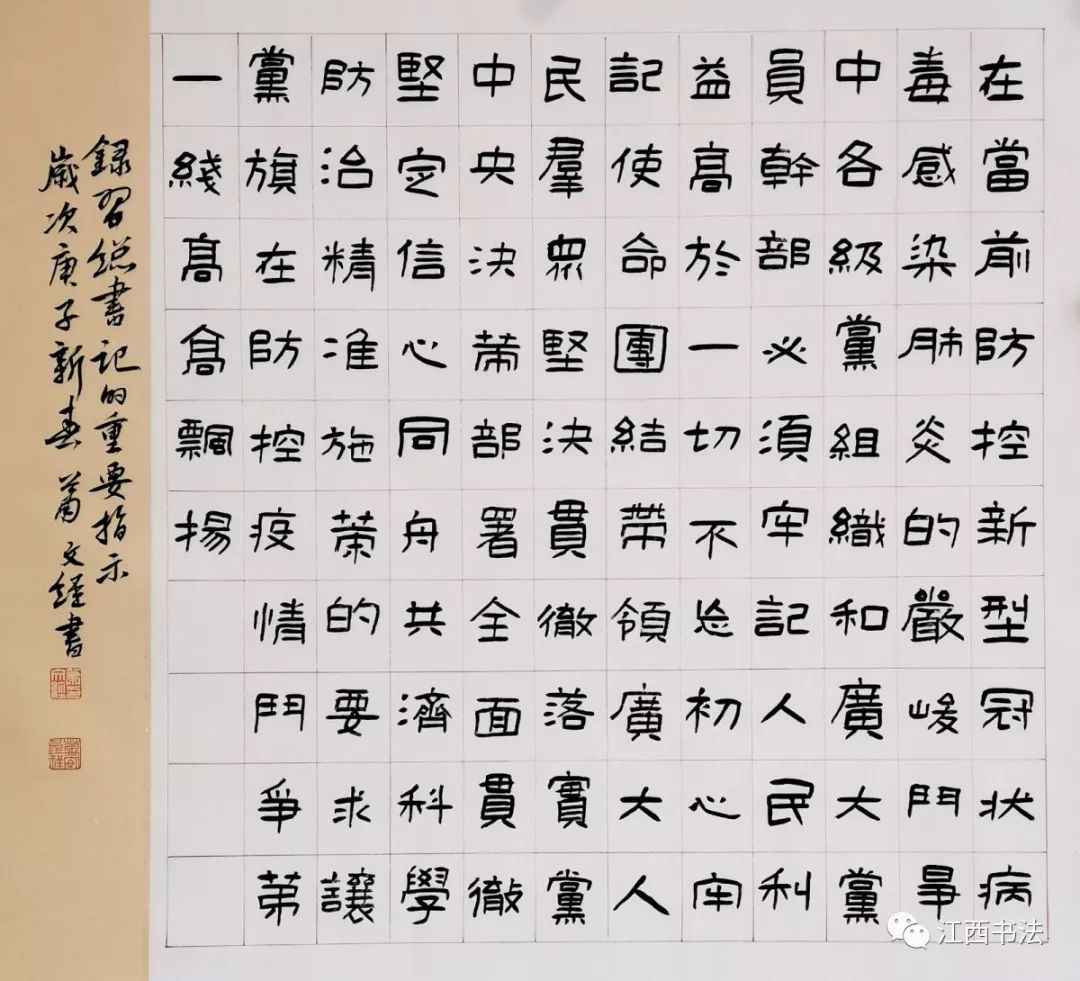 在當前防控新型冠狀病
毒感染肺炎的嚴峻鬥爭
中各級黨組織和廣大黨
員幹部必須牢記人民利
益高於一切不忘初心牢
記使命團結帶領廣大人
民羣眾堅決貫徹落實黨
中央決策部署全面貫徹
堅定信心同舟共濟科學
防治精准施策的要求讓
黨旗在防控疫情鬥爭第
一綫高高飄揚
録習總書記的重要指示
歲次庚子新春蕭文經書
江西书法